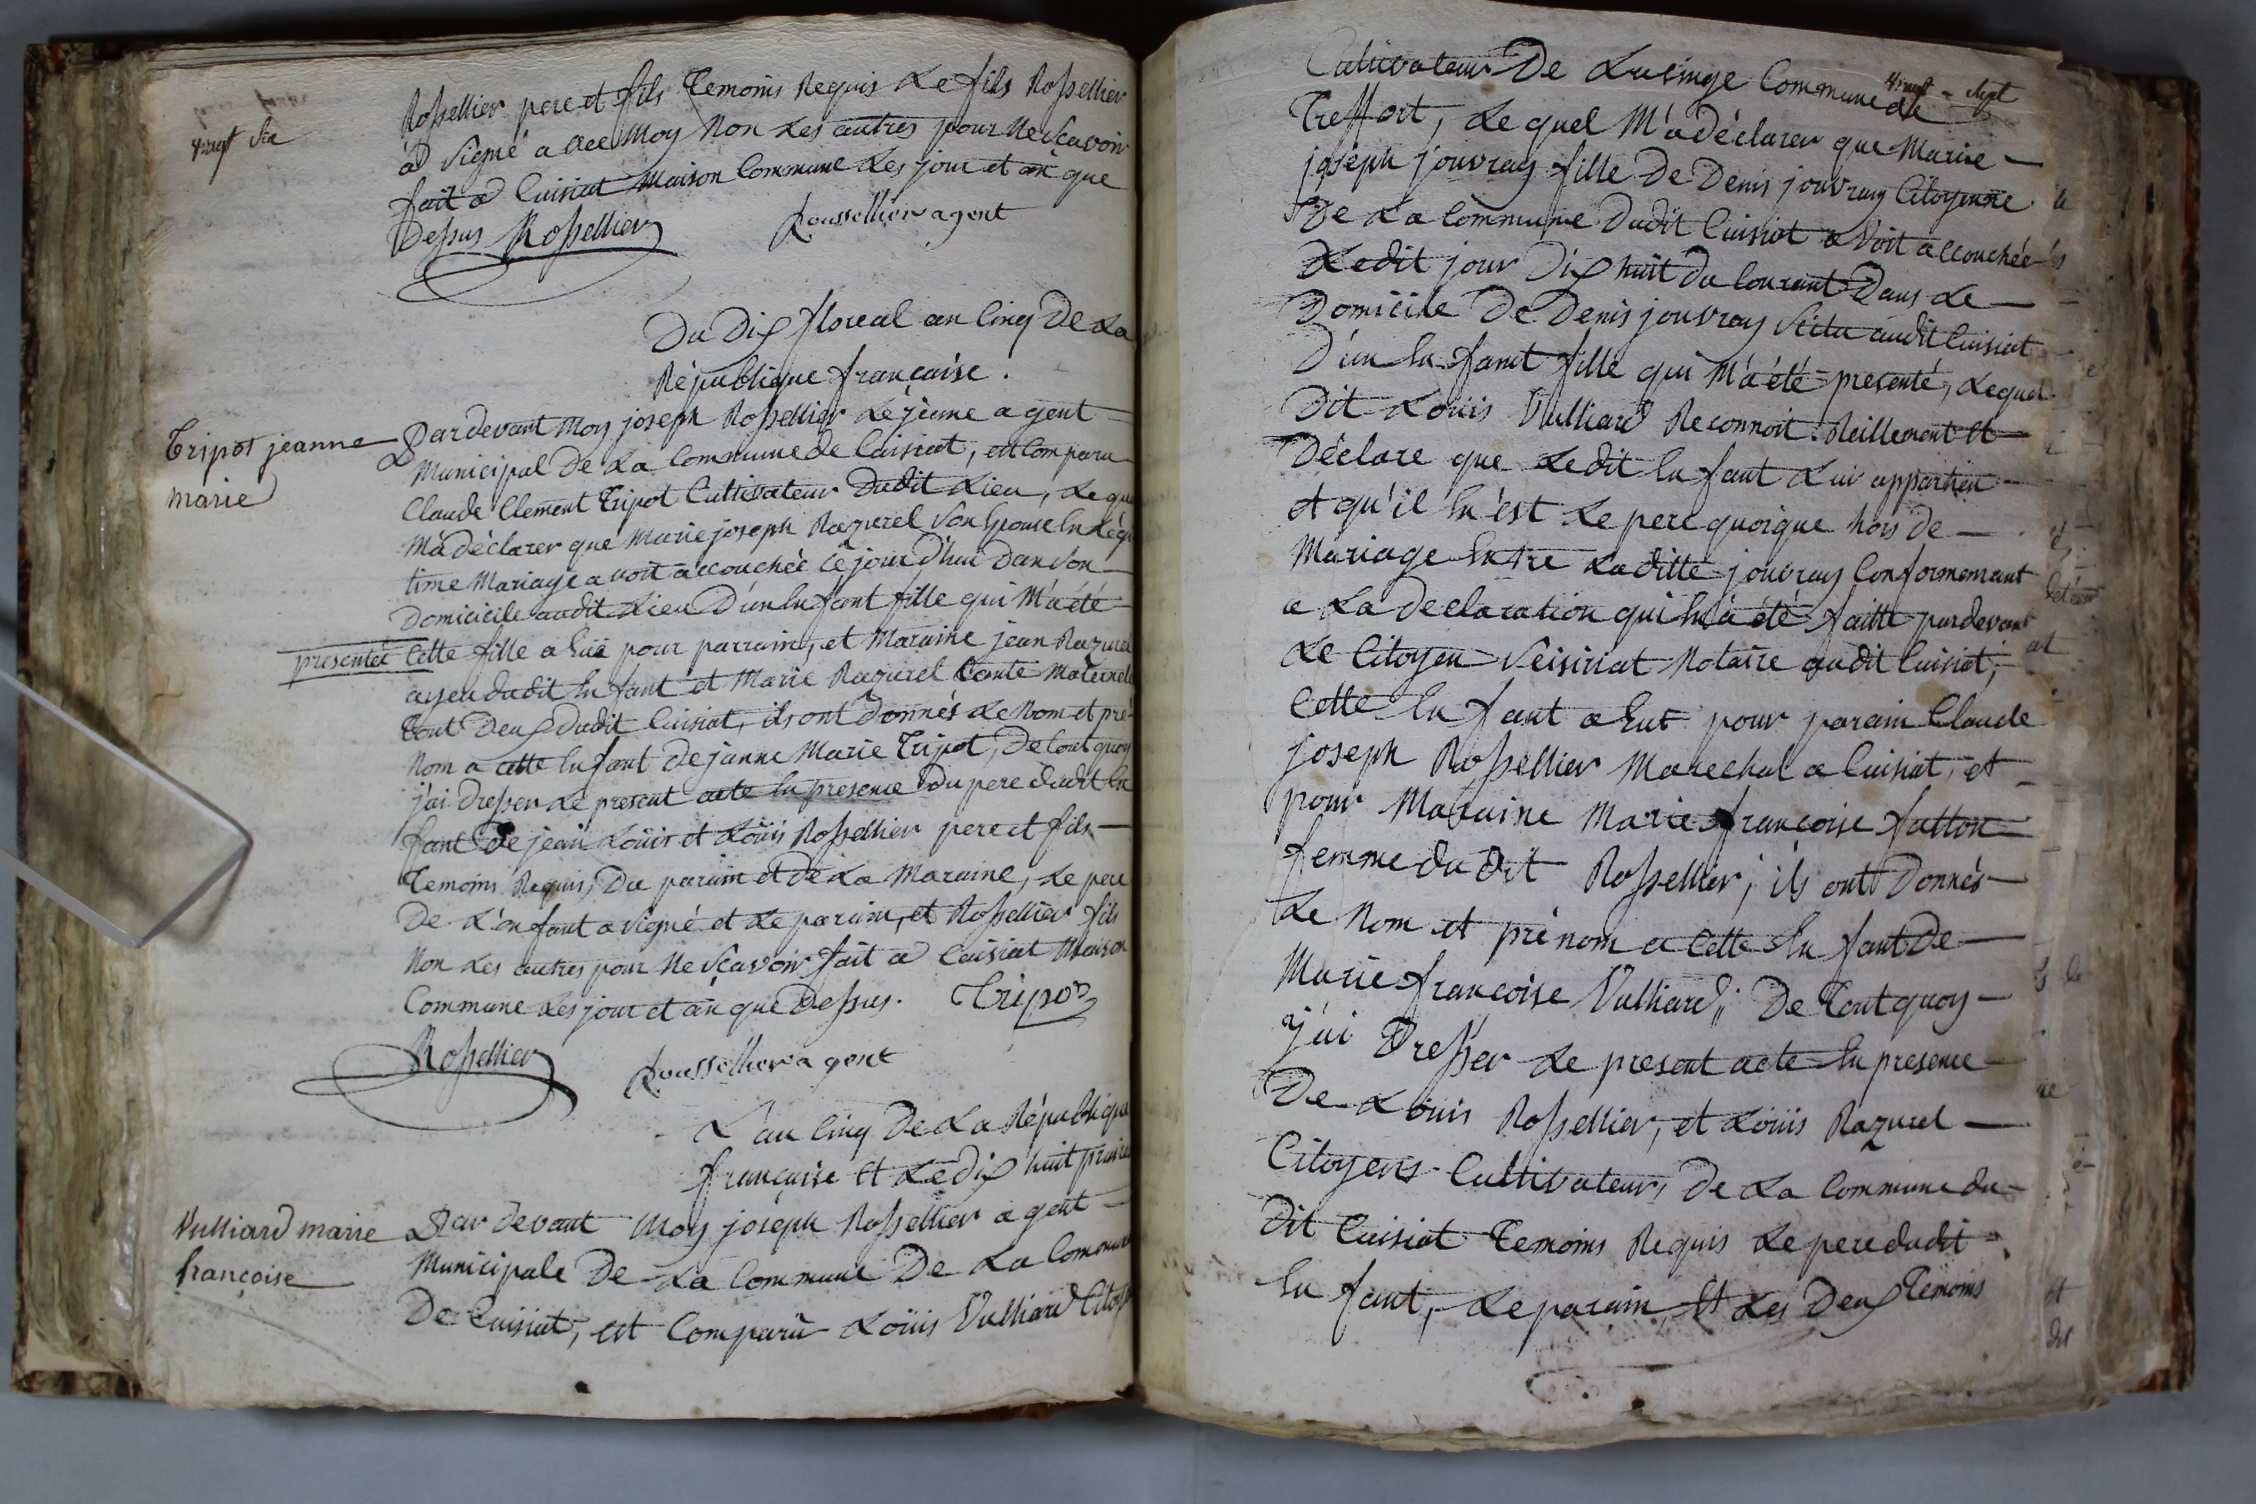 4 vingt six
Rossellier pere et fils Temoins Requis Le fils Rossellier
a Signé a vec Moy Non Les autres pour Ne Scavoir
fait a Cuisiat Maison Commune Les jour et an que
Dessus Rossellier
Roussellier agent
Du Dix floreal an Cinq De La
République française.
Tripot jeanne
marie
Pardevant Moy joseph Rossellier Le jeune agent
Municipal De La Commune de Cuisiat, est Comparu
Claude Clement Tripot Cultivateur Dudit Lieu, Le qu
M'a déclarer que Marie joseph Razurel Son Epouse En Légi
time Mariage avoit accouchée Ce jour D'hui Dan Son
Domicicile audit Lieu D'un Enfant fille qui M'a été
presentée Cette fille a Eüe pour parrain, et Maraine jean Razurel
ayeu dudit Enfant et Marie Razurel Tante Maternel
tout Deux Dudit Cuisiat, ils ont donnés Le Nom et pré
Nom a cette Enfant De janne Marie Tripot, De tout quoy
j'ai Dresser Le present acte En presence Du pere dudit En
fant De jean Loüis et Loüis Rossellier pere et fils
Temoins Requis, Du parain et De La Maraine, Le pere
De L'enfant a Signé et Le parain, et Rossellier fils
Non Les autres pour Ne Scavoir fait a Cuisiat Maison
Commune Les jour et an que Dessus. Tripot
Rossellier
Roussellier agent
L'an Cinq De La République
française Et Le dix huit prairi
Vulliard marie
françoise
Par devant Moy joseph Rossellier agent
Municipale De La Commune De La Commun
De Cuisiat, est Comparu Loüis Vulliard Citoy
4 vingt - sept
Cultivateur De Lusinge Commune de
Treffort, Le quel M'a déclarer que Marie
joseph jouvray fille De Denis jouvray Citoyenne
De La Commune Dudit Cuisiat avoit accouchée
Ledit jour Dix huit du Courant Dans Le
Domicile De Denis jouvray Situ audit Cuisiat
D'un En fant fille qui M'a été presenté, Lequel
Dit Loüis Vulliard Reconnoit Reillement Et
Déclare que Ledit En fant Lui appartien
et qu'il En est Le pere quoique hors de
Mariage Entre Laditte jouvray Conformemant
a La declaration qui En a été faitte pardevant
Le Citoyen Notaire audit Cuisiat,
Cette En fant a Eut pour parain Claude
joseph Rossellier Marechal a Cuisiat, et
pour Maraine Marie françoise fatton
femme dudit Rossellier, ils ont Donnés
Le Nom et prénom a Cette En fant De
Marie françoise Vulliard; De Tout quoy
j'ai Dresser Le present acte En presence
De Loüis Rossellier, et Loüis Razurel
Citoyens Cultivateurs De La Commune du
Dit Cuisiat Temoins Requis Le pere dudit
En fant, Le parain, Et Les Deux Temoins